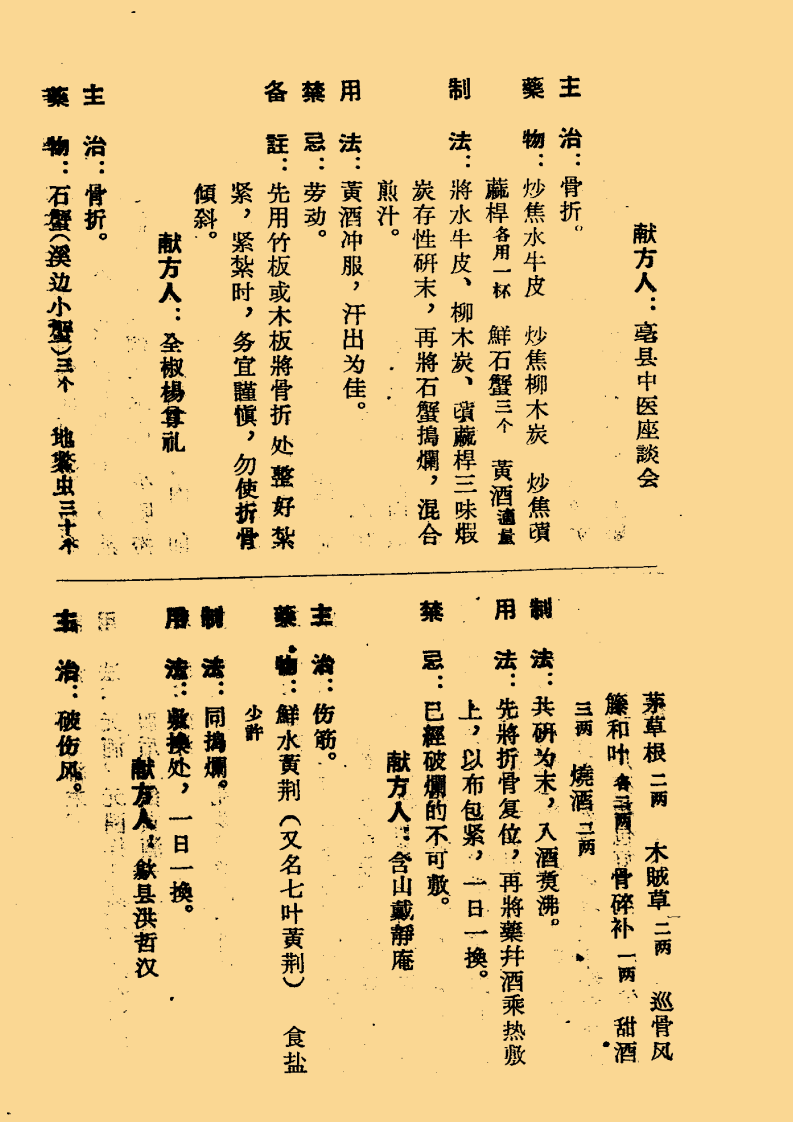 献方人：亳县中医座談会
主治：骨折。
藥物：炒焦水牛皮　炒焦柳木炭　炒焦蔴
蔴桿各用一杯　鮮石蟹三个　黃酒適量
制法：將水牛皮、柳木炭、蔴桿三味煅
炭存性研末，再將石蟹搗爛，混合
煎汁。
用法：黃酒冲服，汗出为佳。
禁忌：劳动。
备註：先用竹板或木板將骨折处整好紮
紧，紧紮时，务宜謹慎，勿使折骨
傾斜。
献方人：全椒楊尊礼
主治：骨折。
藥物：石蟹（溪边小蟹）三个　地鱉虫三十个
茅草根二两　木賊草二两　巡骨风
籐和叶各三两　骨碎补一两　甜酒
三两　燒酒二两
制法：共研为末，入酒煑沸。
用法：先將折骨复位，再將藥幷酒乘热敷
上，以布包紧，一日一換。
禁忌：已經破爛的不可敷。
献方人：含山戴靜庵
主治：伤筋。
藥物：鮮水黃荆（又名七叶黃荆）　食盐
少許
制法：同搗爛。
用法：敷患处，一日一換。
献方人：歙县洪哲汉
主治：破伤风。